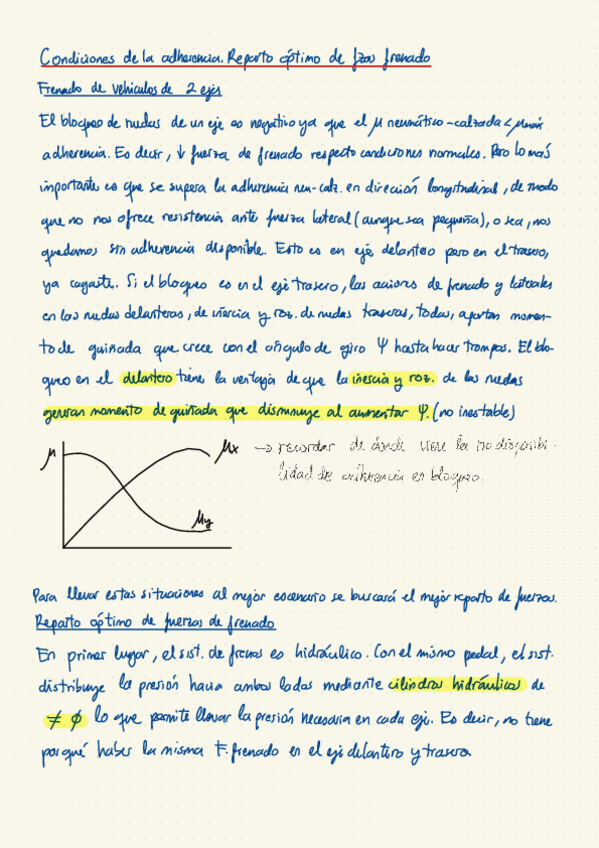 Condiciones de la adherencia. Reparto óptimo de fzas frenado
Frenado de vehículos de 2 ejes
El bloqueo de ruedas de un eje es negativo ya que el μ neumático-calzada < μmáx
adherencia. Es decir, ↓ fuerza de frenado respecto condiciones normales. Pero lo más
importante es que se supera la adherencia neu-calz. en dirección longitudinal, de modo
que no nos ofrece resistencia ante fuerza lateral (aunque sea pequeña), o sea, nos
quedamos sin adherencia disponible. Esto es en eje delantero pero en el trasero,
ya cagaste. Si el bloqueo es en el eje trasero, las acciones de frenado y laterales
en las ruedas delanteras, de inercia y roz. de ruedas traseras, todas, aportan momen-
to de guiñada que crece con el ángulo de giro Ψ hasta hacer trompos. El blo-
queo en el delantero tiene la ventaja de que la inercia y roz. de las ruedas
generan momento de guiñada que disminuye al aumentar Ψ. (no inestable)
μ μx → recordar de donde viene la no disponibi-
lidad de adherencia en bloqueo.
μy
Para llevar estas situaciones al mejor escenario se buscará el mejor reparto de fuerzas.
Reparto óptimo de fuerzas de frenado
En primer lugar, el sist. de frenos es hidráulico. Con el mismo pedal, el sist.
distribuye la presión hacia ambos lados mediante cilindros hidráulicos de
≠ ϕ lo que permite llevar la presión necesaria en cada eje. Es decir, no tiene
por qué haber la misma F. frenado en el eje delantero y trasero.